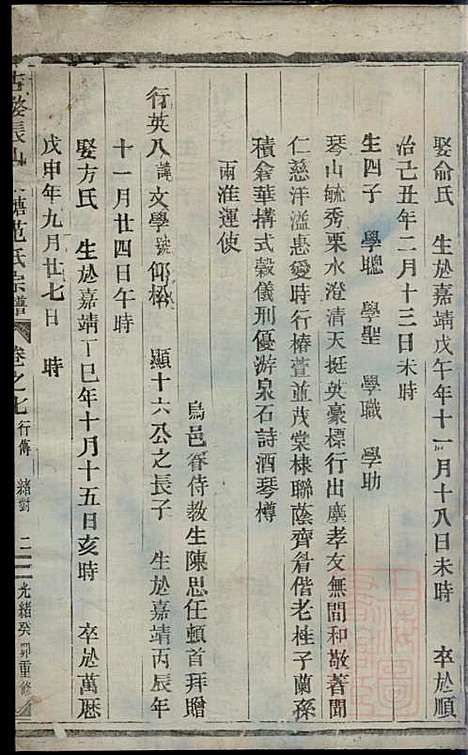 娶俞氏 生於嘉靖戊午年十一月十八日未時 卒於順
治己丑年二月十三日未時
生四子 學聰 學聖 學職 學助
琴山毓秀栗水澄清天挺英豪標行出塵孝友無間和敬著聞
仁慈洋溢惠愛時行椿萱並茂棠棣聯蔭齊眉偕老桂子蘭孫
積倉華搆式穀儀刑優游泉石詩酒琴樽
兩淮運使
烏邑眷侍教生陳思任頓首拜贈
行英八諱文學號仰松 顯十六公之長子 生於嘉靖丙辰年
十一月廿四日午時
娶方氏 生於嘉靖丁巳年十月十五日亥時 卒於萬曆
戊申年九月廿七日 時
古婺長山 塘范氏宗譜 卷之七 行傳 緒對 二 光緒癸卯重修